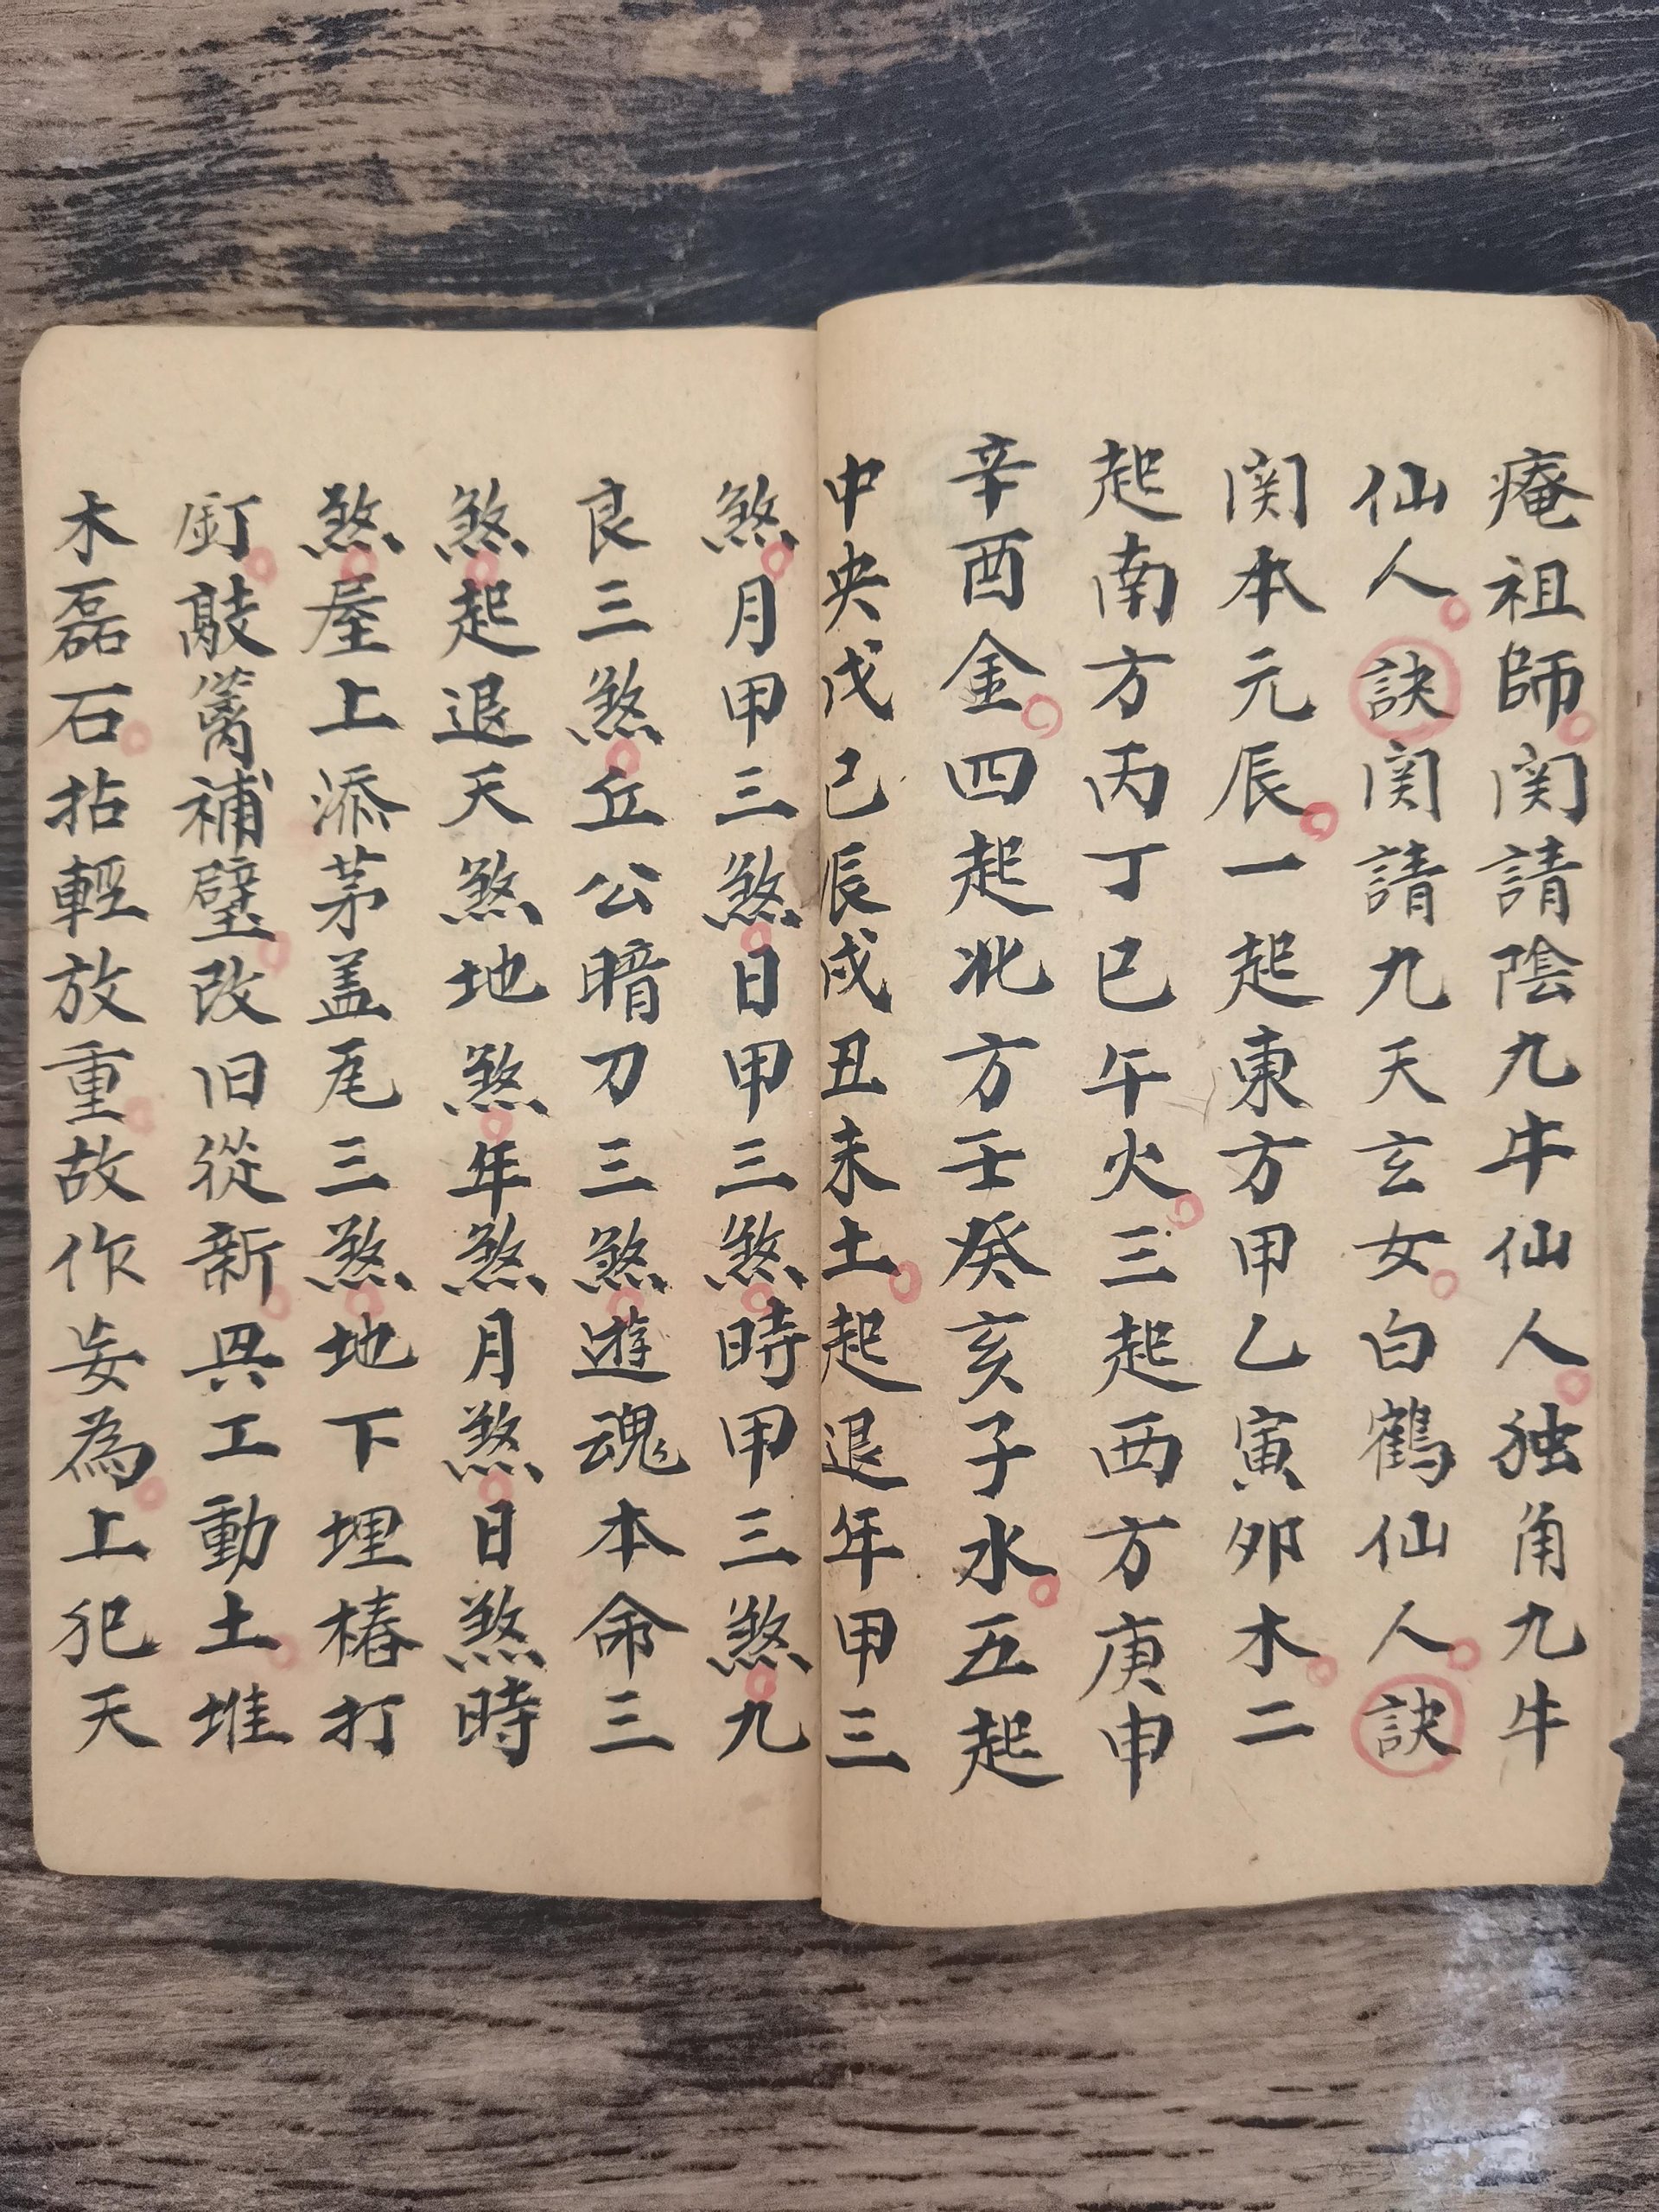 庵祖師関請陰九牛仙人独角九牛
仙人訣関請九天玄女白鶴仙人訣
関本元辰一起東方甲乙寅卯木二
起南方丙丁巳午火三起西方庚申
辛酉金四起北方壬癸亥子水五起
中央戊己辰戌丑未土起退年甲三
煞月甲三煞日甲三煞時甲三煞九
良三煞丘公暗刀三煞遊魂本命三
煞起退天煞地煞年煞月煞日煞時
煞屋上添茅盖瓦三煞地下埋樁打
釘敲篱補壁改旧從新具工動土堆
木磊石拈輕放重故作妄為上犯天